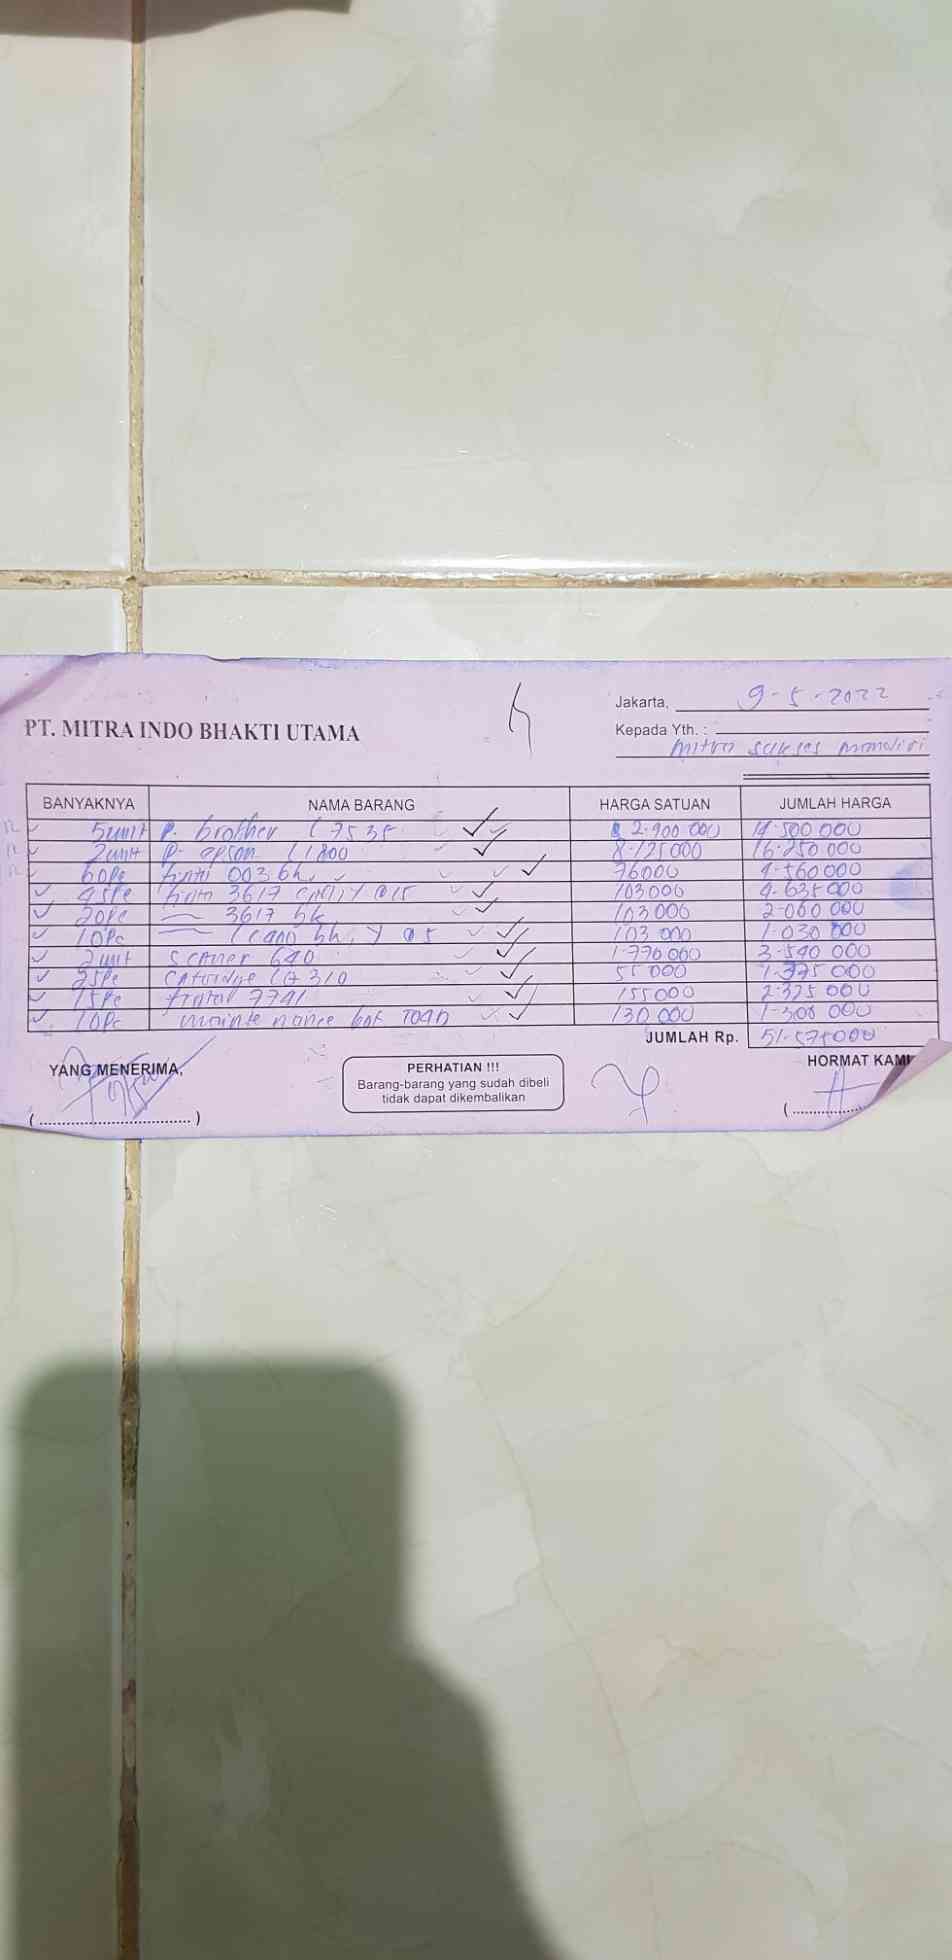 Jakarta, 9-5-2022
PT. MITRA INDO BHAKTI UTAMA
Kepada Yth. :
Mitra sukses mandiri
BANYAKNYA NAMA BARANG HARGA SATUAN JUMLAH HARGA
5 unit P. brother 2.900 000 14.500 000
2 unit P. epson L1800 8.125000 16.250 000
60pc 003 bk 76000 4.560000
45pc 3617 103000 4.635000
20pc 3617 bk 103000 2.060 000
10pc 103 000 1.030 000
2 unit Scaner 640 1.770 000 3.540 000
25pc 310 55 000 1.375 000
15pc 7741 155000 2.325 000
10pc maintenance 130 000 1.300 000
JUMLAH Rp. 51.575000
YANG MENERIMA,
PERHATIAN !!!
HORMAT KAMI
Barang-barang yang sudah dibeli
tidak dapat dikembalikan
(..............................)
(..............